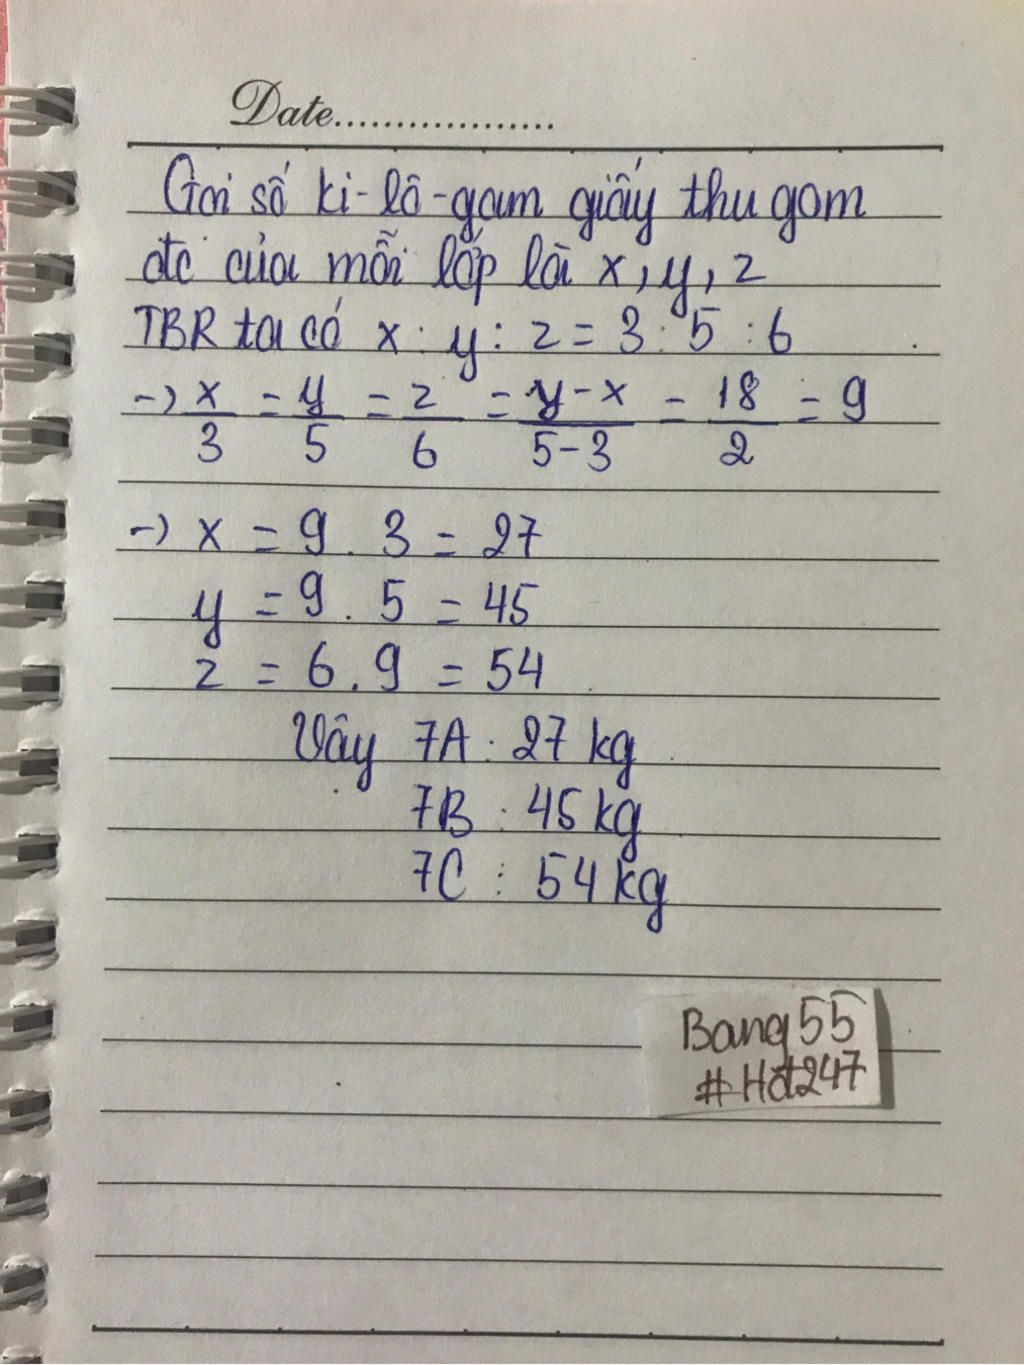 Date..................
Gọi số ki-lô-gam giấy thu gom
đc của mỗi lớp là x, y, z
TBR ta có x : y : z = 3 : 5 : 6
-> x/3 = y/5 = z/6 = y-x/5-3 = 18/2 = 9
-> x = 9 . 3 = 27
y = 9 . 5 = 45
z = 6 . 9 = 54
Vậy 7A : 27 kg
7B : 45 kg
7C : 54 kg
Bang55
#Hđ247